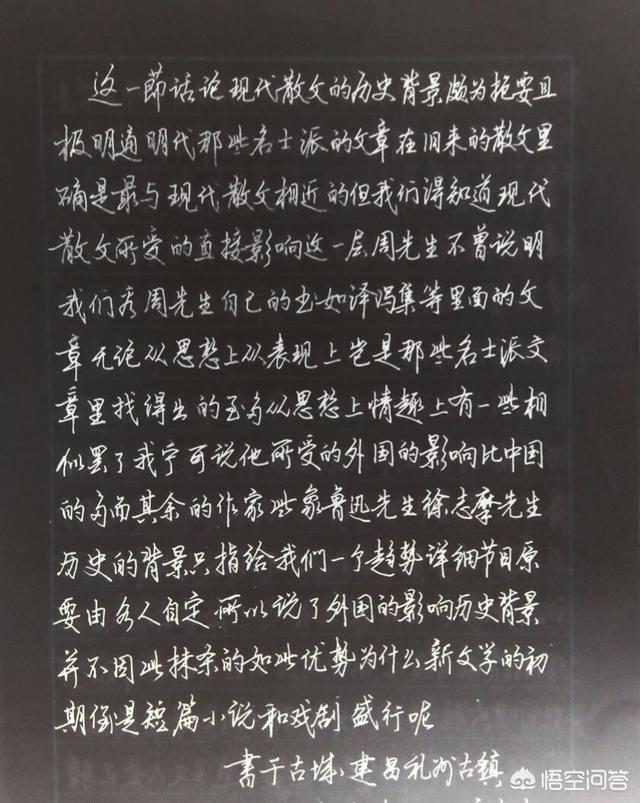 这一節话论现代散文的历史背景颇为扼要且
极明通明代那些名士派的文章在旧来的散文里
确是最与现代散文相近的但我们得知道现代
散文所受的直接影响这一层周先生不曾说明
我们看周先生自己的书如泽泻集等里面的文
章无论从思想上从表现上岂是那些名士派文
章里找得出的至多从思想上情趣上有一些相
似罢了我宁可说他所受的外国的影响比中国
的多而其余的作家些象鲁迅先生徐志摩先生
历史的背景只指给我们一个趋势详细节目原
要由各人自定所以说了外国的影响历史背景
并不因些抹杀的如些优势为什么新文学的初
期倒是短篇小说和戏剧盛行呢
書于古城建昌礼州古鎮
悟空问答